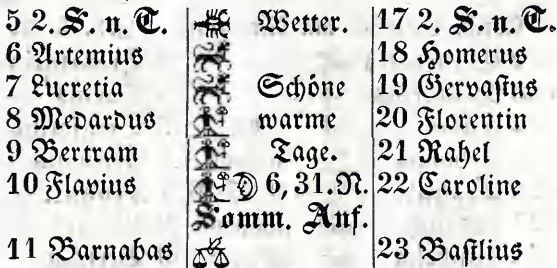 5 2. S. n. T. Wetter. 17 2. S. n. T.
6 Artemius 18 Homerus
7 Lucretia Schöne 19 Gervasius
8 Medardus warme 20 Florentin
9 Bertram Tage. 21 Rahel
10 Flavius 6, 31. N. 22 Caroline
Somm. Anf.
11 Barnabas 23 Basilius